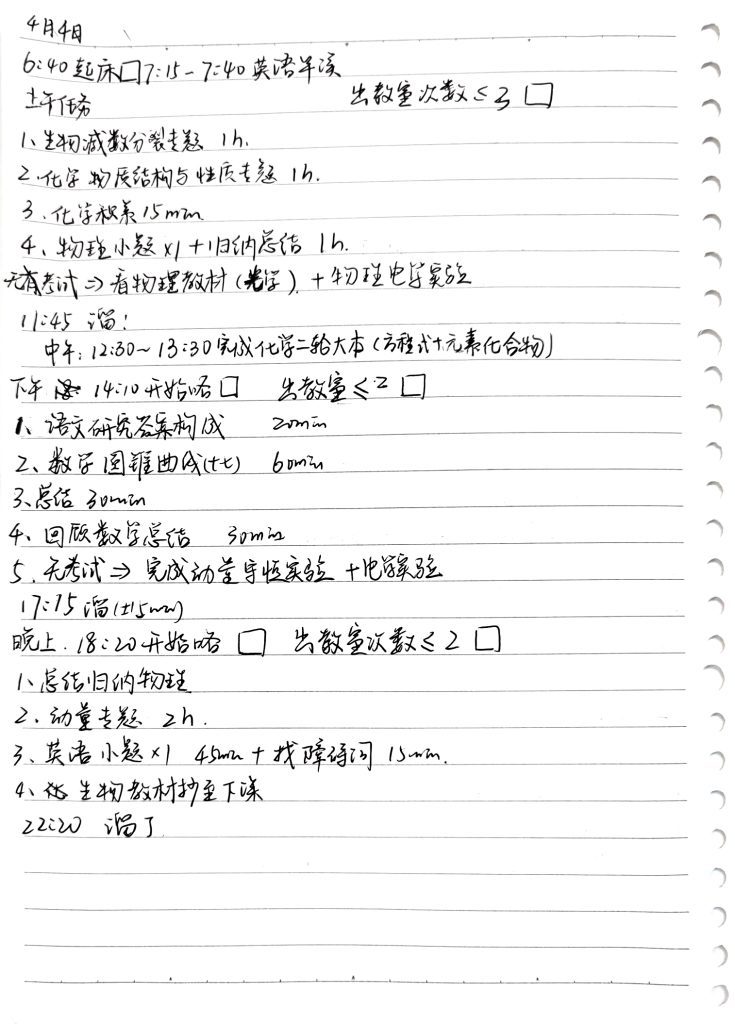 4月4日
6:40 起床□ 7:15-7:40 英语早读
上午任务 出教室次数≤3 □
1、生物减数分裂专题 1h.
2、化学 物质结构与性质专题 1h.
3、化学 15min
4、物理小题×1+归纳总结 1h.
无考试⇒看物理教材(光学).+物理电学实验
11:45 溜!
中午:12:30~13:30完成化学二轮大本(方程式+元素化合物)
下午 14:10开始咯□ 出教室≤2 □
1、语文研究答案构成 20min
2、数学圆锥曲线(十七) 60min
3、总结 30min
4、回顾数学总结 30min
5.无考试⇒完成动量守恒实验+电学实验
17:15溜(±15min)
晚上.18:20开始咯 □ 出教室次数≤2 □
1、总结归纳物理
2、动量专题 2h.
3、英语小题×1 45min+找障碍词 15min.
4、生物教材抄至下课
22:20 溜了